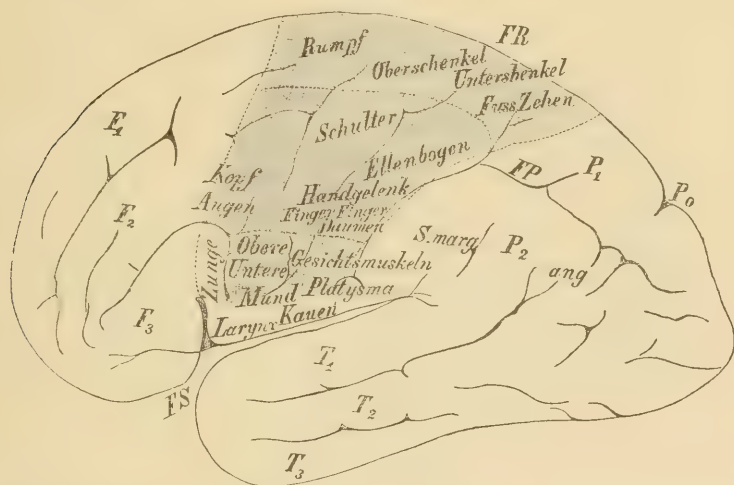 FR
Rumpf
Oberschenkel
Untershenkel
Fuss Zehen
F1
Schulter
Ellenbogen
Kopf
Augen
Handgelenk
Finger Finger
Daumen
FP
P1
Po
F2
Zunge
Obere
Untere
Gesichtsmuskeln
S.marg
P2
ang
Mund
Platysma
F3
Larynx
Kauen
T1
FS
T2
T3